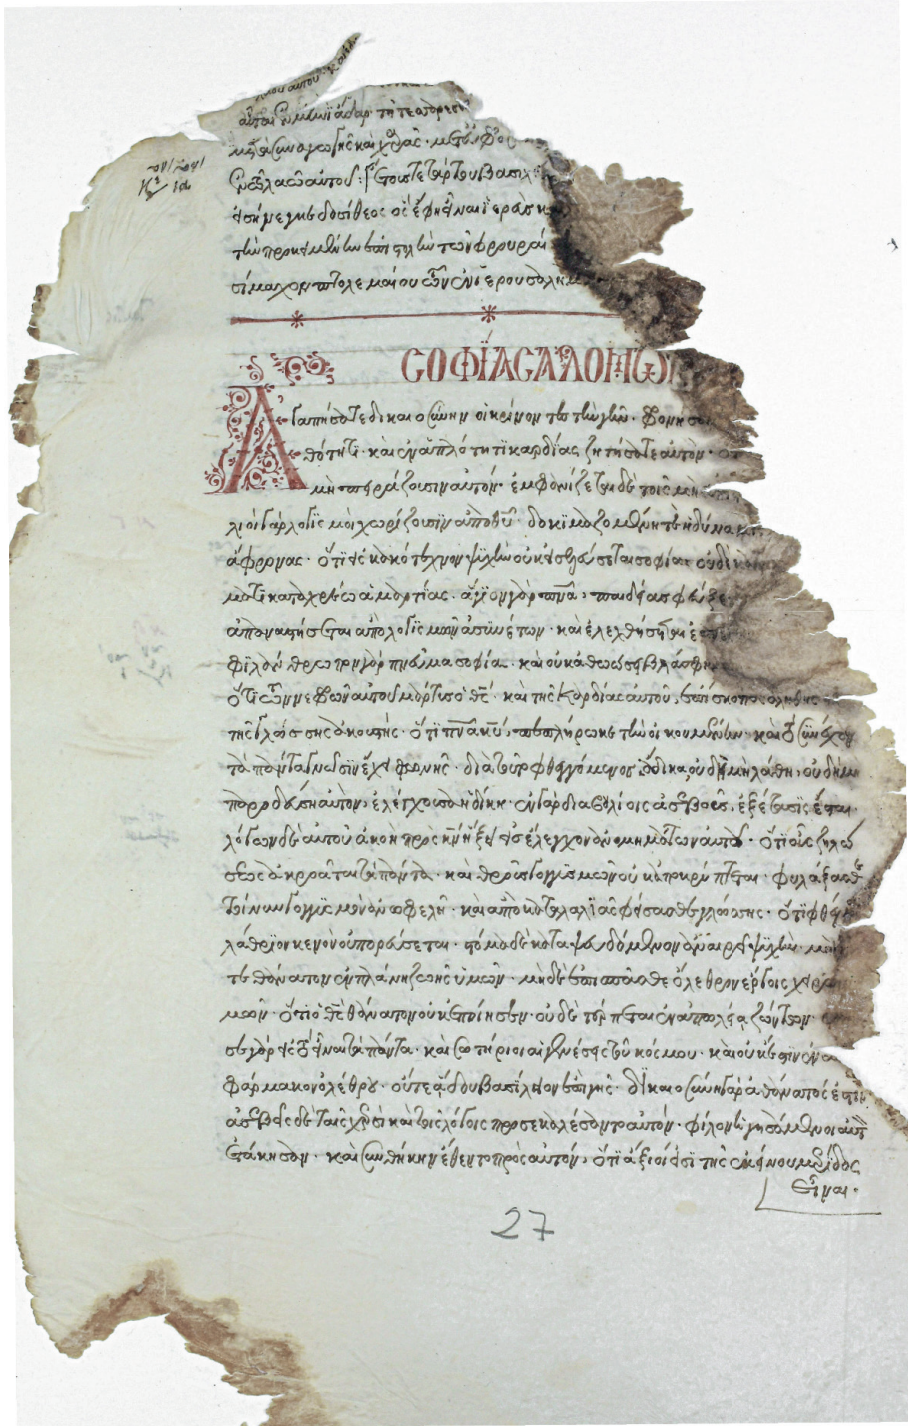 αὗται ἐν μηνὶ ἄδαρ· τῇ τεσσαρεσκ
μετὰ συναγωγῆς καὶ χαρᾶς· μετ' εὐφρο
ἐν τῷ λαῷ αὐτοῦ: ἔτους τετάρτου βασιλε
εἰσήνεγκε δοσίθεος ὃς ἔφη εἶναι ἱερεὺς κ
τὴν προκειμένην ἐπιστολὴν τῶν φρουραὶ
σίμαχον πτολεμαίου τῶν ἐν ἱερουσαλημ
ΣΟΦΪΑ ΣΑΛΟΜΩΝ
Ἀγαπήσατε δικαιοσύνην οἱ κρίνοντες τὴν γῆν· φρονήσα
θότητι· καὶ ἐν ἁπλότητι καρδίας ζητήσατε αὐτόν· ὅτ
μὴ πειράζουσιν αὐτόν· ἐμφανίζεται δὲ τοῖς μὴ
λιοὶ γὰρ λογισμοὶ χωρίζουσιν ἀπὸ θυ̅· δοκιμαζομένη τε ἡ δύναμις
ἄφρονας· ὅτι εἰς κακότεχνον ψυχὴν οὐκ εἰσελεύσεται σοφία· οὐδὲ κατοι
ματι καταχρέῳ ἁμαρτίας· ἅγιον γὰρ πνα̅ παιδείας φεύξε
ἀπαναστήσεται ἀπὸ λογισμῶν ἀσυνέτων· καὶ ἐλεγχθήσεται ἐπελ
φιλάνθρωπον γὰρ πνεῦμα σοφία· καὶ οὐκ ἀθωώσει βλάσφη
ὅτι τῶν νεφρῶν αὐτοῦ μάρτυς ὁ θς̅· καὶ τῆς καρδίας αὐτοῦ ἐπίσκοπος ἀληθὴς
τῆς γλώσσης ἀκουστής· ὅτι πνα̅ κυ̅ πεπλήρωκε τὴν οἰκουμένην· καὶ τὸ συνέχον
τὰ πάντα γνῶσιν ἔχει φωνῆς· διὰ τοῦτο φθεγγόμενος ἄδικα, οὐδεὶς μὴ λάθῃ· οὐδὲ μὴ
παροδεύσῃ αὐτὸν ἐλέγχουσα ἡ δίκη· ἐν γὰρ διαβουλίοις ἀσεβοῦς, ἐξέτασις ἔσται·
λόγων δὲ αὐτοῦ ἀκοὴ πρὸς κν̅ ἥξει εἰς ἔλεγχον ἀνομημάτων αὐτοῦ· ὅτι οὖς ζηλώ
σεως ἀκροᾶται τὰ πάντα· καὶ θροῦς γογγυσμῶν οὐκ ἀποκρύπτεται· φυλάξασθε
τοίνυν γογγυσμὸν ἀνωφελῆ· καὶ ἀπὸ καταλαλιᾶς φείσασθε γλώσσης· ὅτι φθέγμα
λαθραῖον κενὸν οὐ πορεύσεται· στόμα δὲ καταψευδόμενον ἀναιρεῖ ψυχήν· μὴ ζηλοῦ
τε θάνατον ἐν πλάνῃ ζωῆς ὑμῶν· μηδὲ ἐπισπᾶσθε ὄλεθρον ἔργοις χειρῶν
μῶν· ὅτι ὁ θς̅ θάνατον οὐκ ἐποίησεν· οὐδὲ τέρπεται ἐν ἀπωλείᾳ ζώντων·
σε γὰρ εἰς τὸ εἶναι τὰ πάντα· καὶ σωτήριοι αἱ γενέσεις τοῦ κόσμου· καὶ οὐκ ἔστιν ἐν αὐ
φάρμακον ὀλέθρου· οὔτε ᾅδου βασίλειον ἐπὶ γῆς· δικαιοσύνη γὰρ ἀθάνατός ἐστιν
ἀσεβεῖς δὲ ταῖς χερσὶ καὶ τοῖς λόγοις προσεκαλέσαντο αὐτόν· φίλον ἡγησάμενοι αὐτὸν
ἐτάκησαν· καὶ συνθήκην ἔθεντο πρὸς αὐτόν, ὅτι ἄξιοί εἰσι τῆς ἐκείνου μερίδος
εἶναι·
27